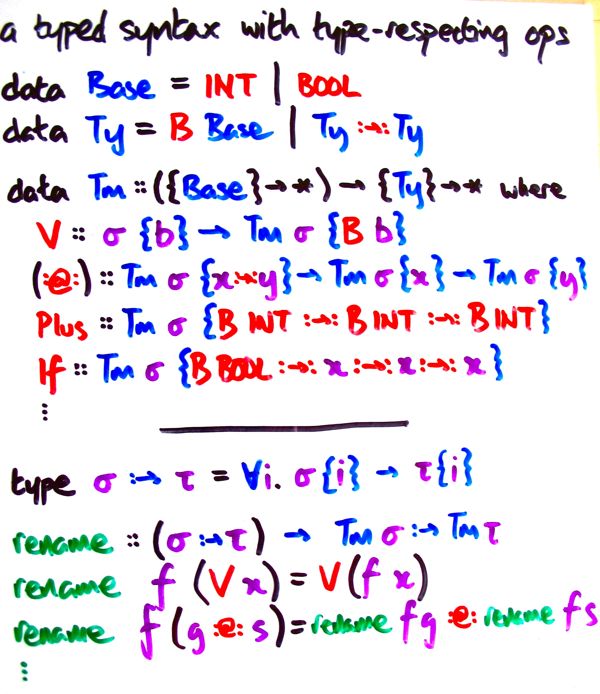 a typed syntax with type-respecting ops
data Base = INT | BOOL
data Ty = B Base | Ty :→: Ty
data Tm :: ({Base}→*) → {Ty}→* where
V :: σ {b} → Tm σ {B b}
(:@:) :: Tm σ {x:→:y} → Tm σ {x} → Tm σ {y}
Plus :: Tm σ {B INT :→: B INT :→: B INT}
If :: Tm σ {B BOOL :→: x :→: x :→: x}
⋮
type σ :→ τ = ∀i. σ{i} → τ{i}
rename :: (σ :→ τ) → Tm σ :→ Tm τ
rename f (V x) = V (f x)
rename f (g :@: s) = rename f g :@: rename f s
⋮